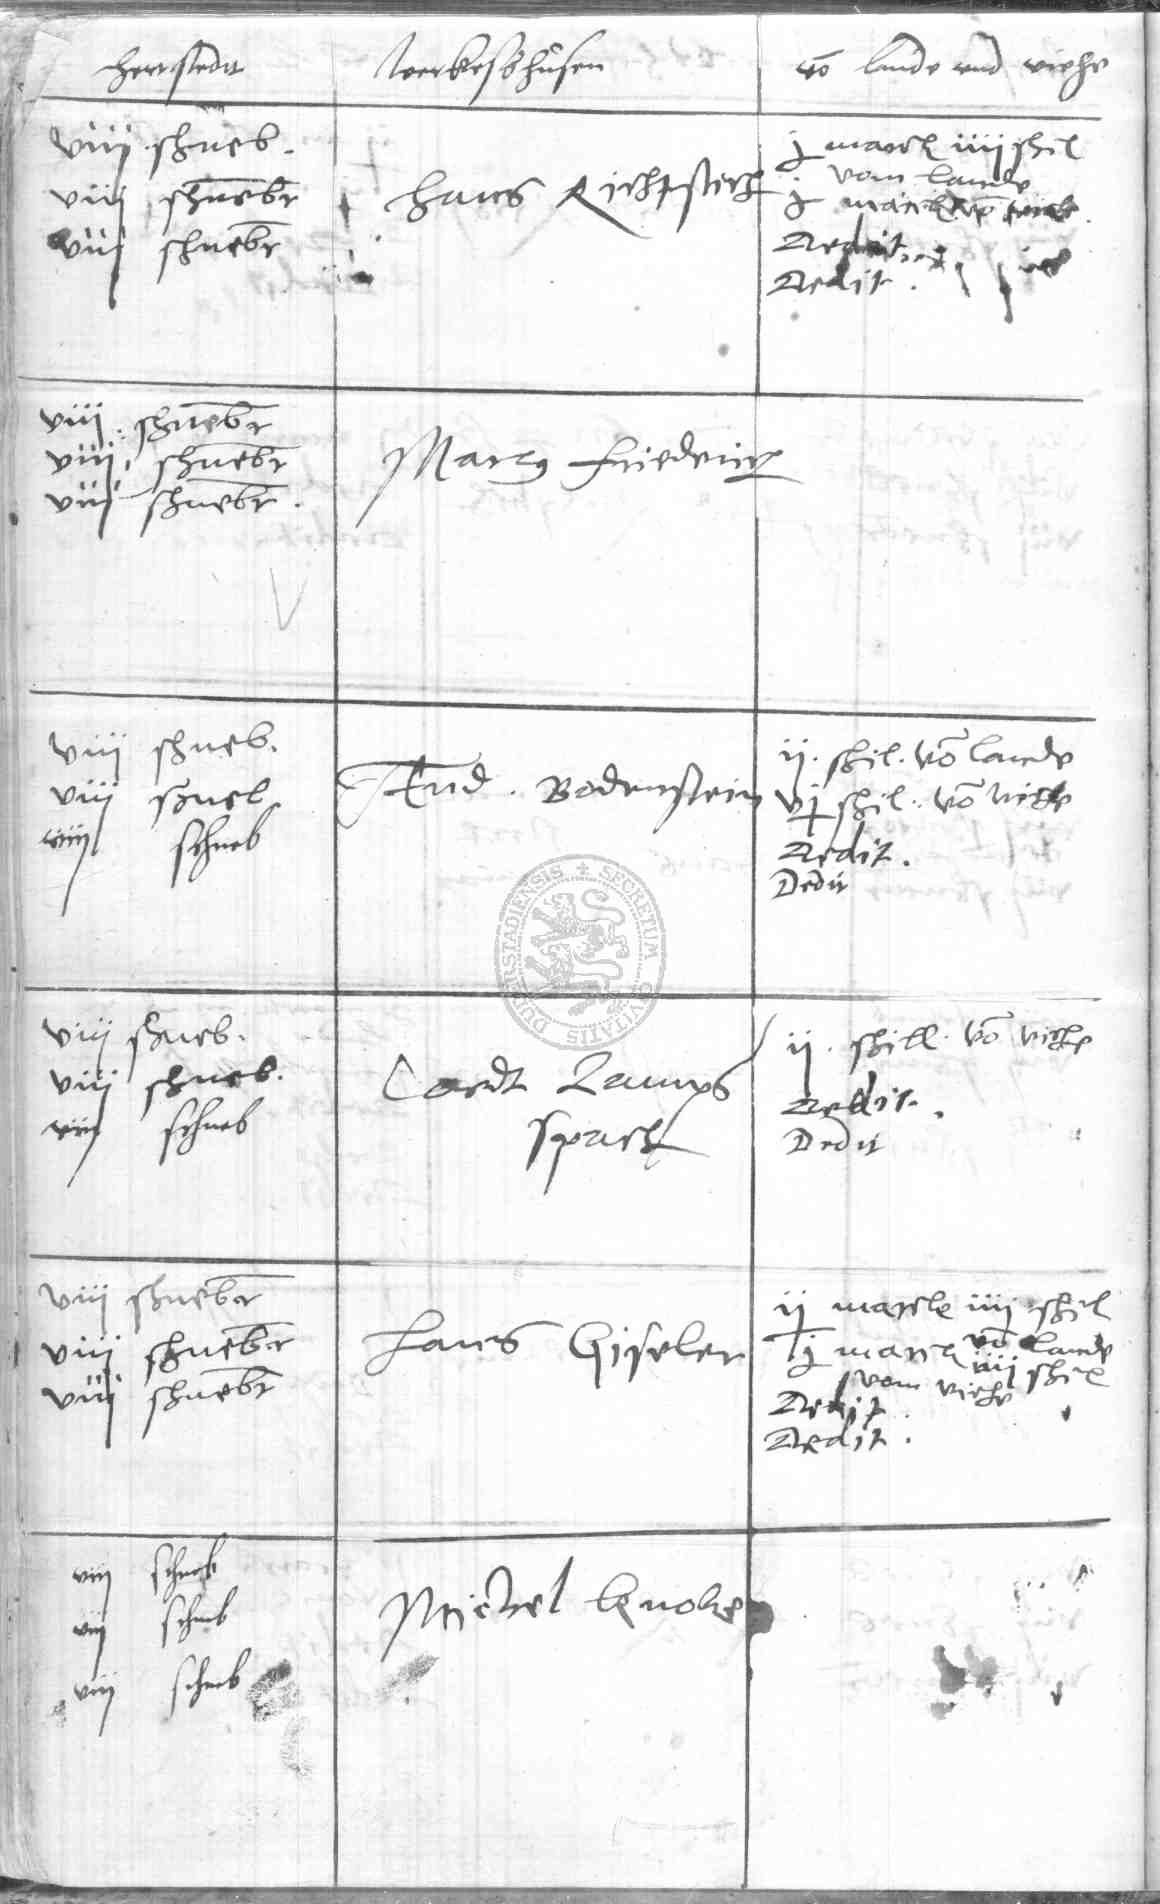 herrstedt
werkeshusen
vō lande und viehe
viij shneb.
viij shnebr
viij shnebr
hans Richtstich
j marck iiij shil
vom lande
j marck vō viehe
Dedit
Dedit.
viij shnebr
viij shnebr
viij shnebr.
Marx Friederich
viij shneb.
viij shneb
viij schneb
And. Bodenstein
ij. shil. vō lande
vj shil. vō viehe
Dedit.
Dedit
viij shneb.
viij shneb.
viij schneb
Cordt Lamp
sprech
ij. shill. vō viehe
Dedit.
Dedit
viij shnebr
viij shnebr
viij shnebr
Hans Giseler
ij marck iiij shil
vō lande
j marck iiij shil
vom viehe
Dedit
Dedit.
viij schneb
viij schneb
viij schneb
Michel knoke
SECRETUM CIVITATIS DUDERSTADIENSIS